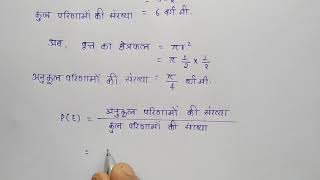 कुल परिणामों की संख्या = 6 वर्ग मी.
अब, वृत्त का क्षेत्रफल = πr²
= π 1/2 x 1/2
अनुकूल परिणामों की संख्या = π/4 वर्ग मी.
P(E) = अनुकूल परिणामों की संख्या / कुल परिणामों की संख्या
=